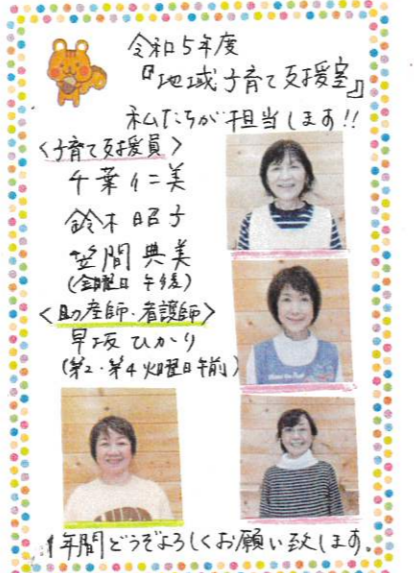 令和5年度
『地域子育て支援室』
私たちが担当します!!
<子育て支援員>
千葉仁美
鈴木昭子
笠間典美
(金曜日 午後)
<助産師・看護師>
早坂ひかり
(第2・第4火曜日午前)
1年間どうぞよろしくお願い致します。